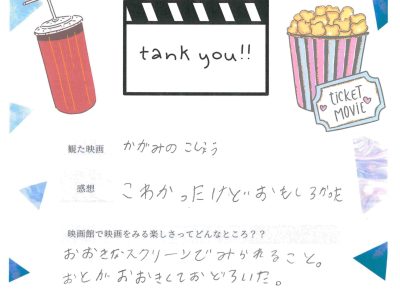 tank you!!
TICKET
MOVIE
観た映画 かがみのこしょう
感想 こわかったけどおもしろかった
映画館で映画をみる楽しさってどんなところ？？
おおきなスクリーンでみられること。
おとがおおきくておどろいた。